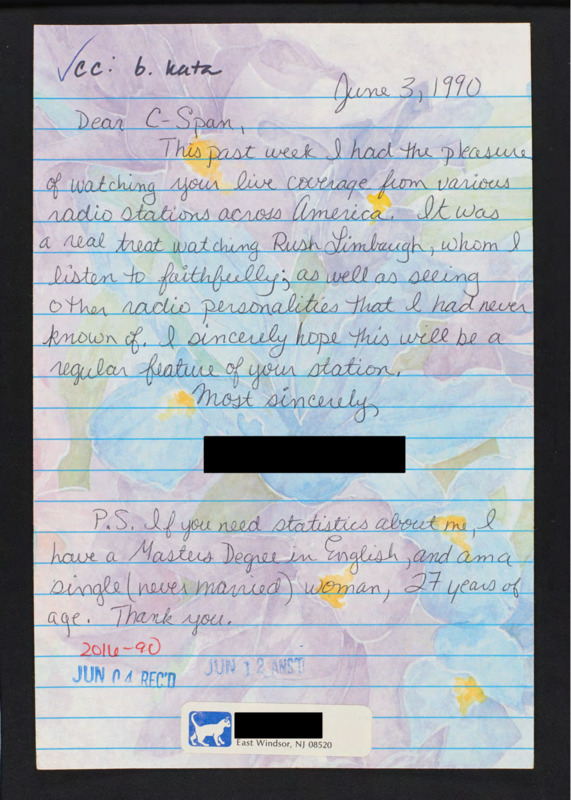 ✓cc: b. katz
June 3, 1990
Dear C-Span,
This past week I had the pleasure
of watching your live coverage from various
radio stations across America. It was
a real treat watching Rush Limbaugh, whom I
listen to faithfully; as well as seeing
other radio personalities that I had never
known of. I sincerely hope this will be a
regular feature of your station.
Most sincerely,
P.S. If you need statistics about me, I
have a Masters Degree in English, and am a
single (never married) woman, 27 years of
age. Thank you.
2016-90
JUN 04 REC'D JUN 12 ANS'D
East Windsor, NJ 08520